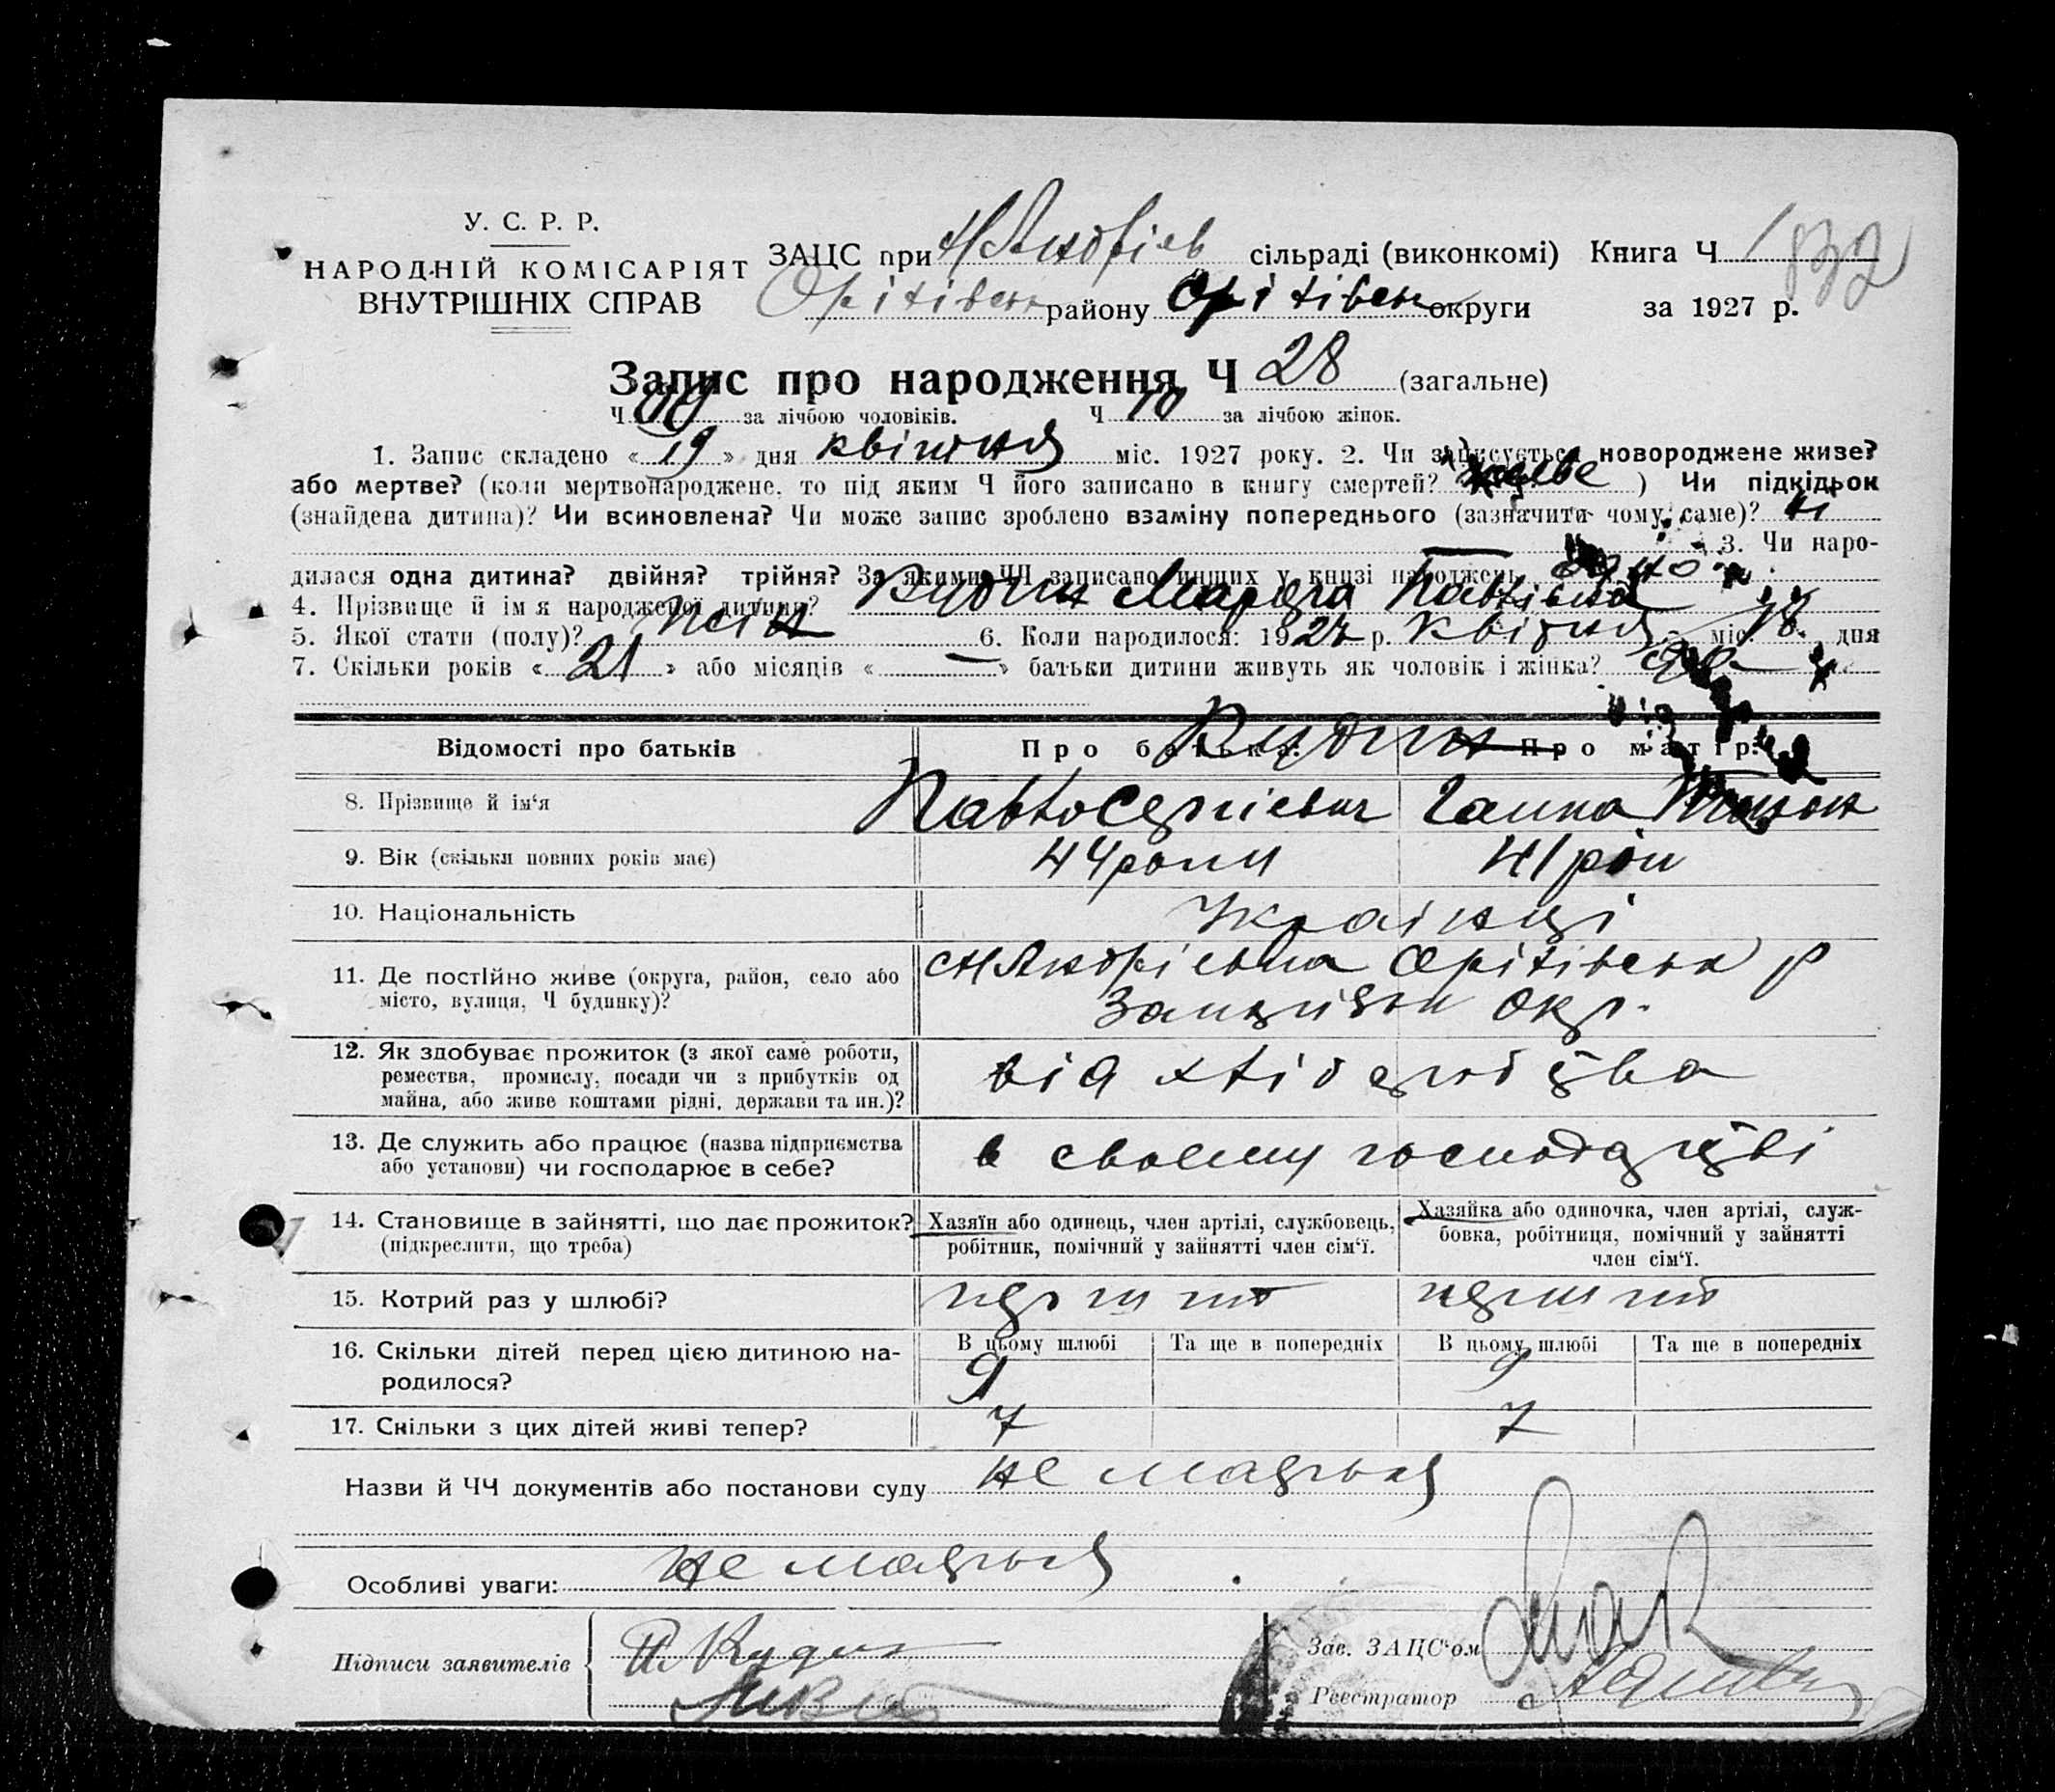 У. С. Р. Р.
НАРОДНІЙ КОМІСАРІЯТ
ВНУТРІШНІХ СПРАВ
ЗАЦС при сільраді (виконкомі) Книга Ч
Оріхівськ району Оріхівськ округи за 1927 р.
Запис про народження Ч 28 (загальне)
Ч за лічбою чоловіків. Ч 10 за лічбою жінок.
1. Запис складено « 19 » дня квітня міс. 1927 року. 2. Чи записується новороджене живе?
або мертве? (коли мертвонароджене, то під яким Ч його записано в книгу смертей? живе ) Чи підкідьок
(знайдена дитина)? Чи всиновлена? Чи може запис зроблено взаміну попереднього (зазначити чому саме)? ні
3. Чи наро-
дилася одна дитина? двійня? трійня? За якими ЧЧ записано инших у книзі народжень одно
4. Прізвище й імя народженої дитини? Кудин Марфа Павлівна
5. Якої стати (полу)? жін 6. Коли народилося: 1927 р. квітня міс. 18 дня
7. Скільки років « 21 » або місяців « — » батьки дитини живуть як чоловік і жінка?
Відомості про батьків Про батька: Про матір:
Кудин
8. Прізвище й ім‘я Павло Сергієвич Ганна
9. Вік (скільки повних років має) 44 роки 41 рік
10. Національність Українці
11. Де постійно живе (округа, район, село або Оріхівськ р
місто, вулиця, Ч будинку)? Запорізьк Окр.
12. Як здобуває прожиток (з якої саме роботи,
ремества, промислу, посади чи з прибутків од від хліборобства
майна, або живе коштами рідні, держави та ин.)?
13. Де служить або працює (назва підприємства в своєму господарстві
або установи) чи господарює в себе?
14. Становище в зайнятті, що дає прожиток? Хазяїн або одинець, член артілі, службовець, Хазяйка або одиночка, член артілі, служ-
(підкреслити, що треба) робітник, помічний у зайнятті член сім‘ї. бовка, робітниця, помічний у зайнятті
член сім‘ї.
15. Котрий раз у шлюбі? перший перший
16. Скільки дітей перед цією дитиною на- В цьому шлюбі Та ще в попередніх В цьому шлюбі Та ще в попередніх
родилося? 9 9
17. Скільки з цих дітей живі тепер? 7 7
Назви й ЧЧ документів або постанови суду не мається
Особливі уваги: не мається
Підписи заявителів П. Кудин
Зав. ЗАЦС‘ом
Реєстратор